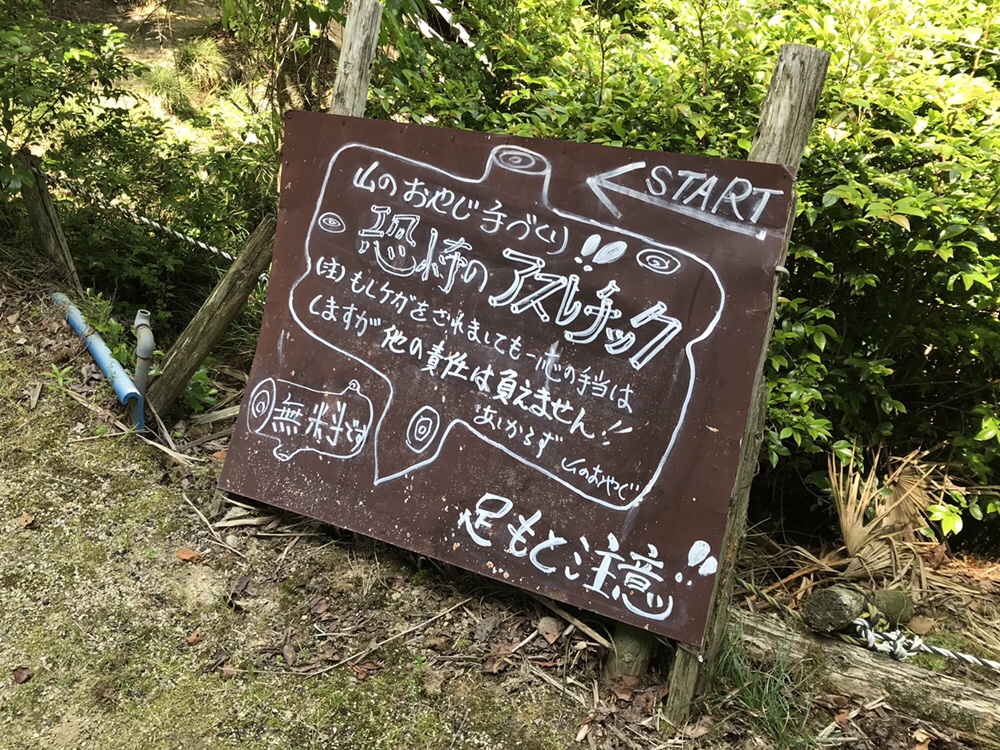 START
山のおやじ手づくり
恐怖のアスレチック!!
(注)もしケガをされましても一応の手当は
しますが 他の責任は負えません!!
あしからず
山のおやじ
無料です
足もと注意!!